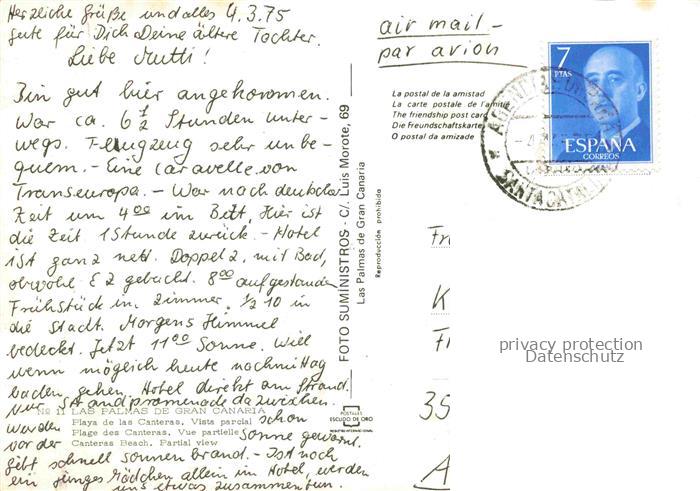 Herzliche Grüße und alles 4.3.75
gute für Dich Deine ältere Tochter.
Liebe Mutti!
Bin gut hier angekommen.
War ca. 6 1/2 Stunden unter-
wegs. Flugzeug sehr unbe-
quem. - Eine caravelle von
Transeuropa. - War nach deutscher
Zeit um 4⁰⁰ im Bett, Hier ist
die Zeit 1 Stunde zurück. - Hotel
ist ganz nett. Doppelz. mit Bad,
obwohl EZ gebucht. 8⁰⁰ aufgestanden
Frühstück im Zimmer. 1/2 10 in
die Stadt. Morgens Himmel
bedeckt. Jetzt 11⁰⁰ Sonne. Will
wenn möglich heute nachmittag
baden gehen. Hotel direkt am Strand.
nur Strandpromenade dazwischen.
Nº 11 LAS PALMAS DE GRAN CANARIA
Playa de las Canteras. Vista parcial
Plage des Canteras. Vue partielle
Canteras Beach. Partial view
wurden schon
vor der Sonne gewarnt.
gibt schnell sonnenbrand. - Ist noch
ein junges Mädchen allein im Hotel, werden
uns etwas zusammentun.
POSTALES
ESCUDO DE ORO
FOTO SUMINISTROS - C/. Luis Morote, 69
Las Palmas de Gran Canaria
Reproducción prohibida
air mail -
par avion
La postal de la amistad
La carte postale de l'amitié
The friendship post card
Die Freundschaftskarte
O postal da amizade
7
PTAS
ESPAÑA
CORREOS
Fr
K
Fr
35
A
privacy protection
Datenschutz